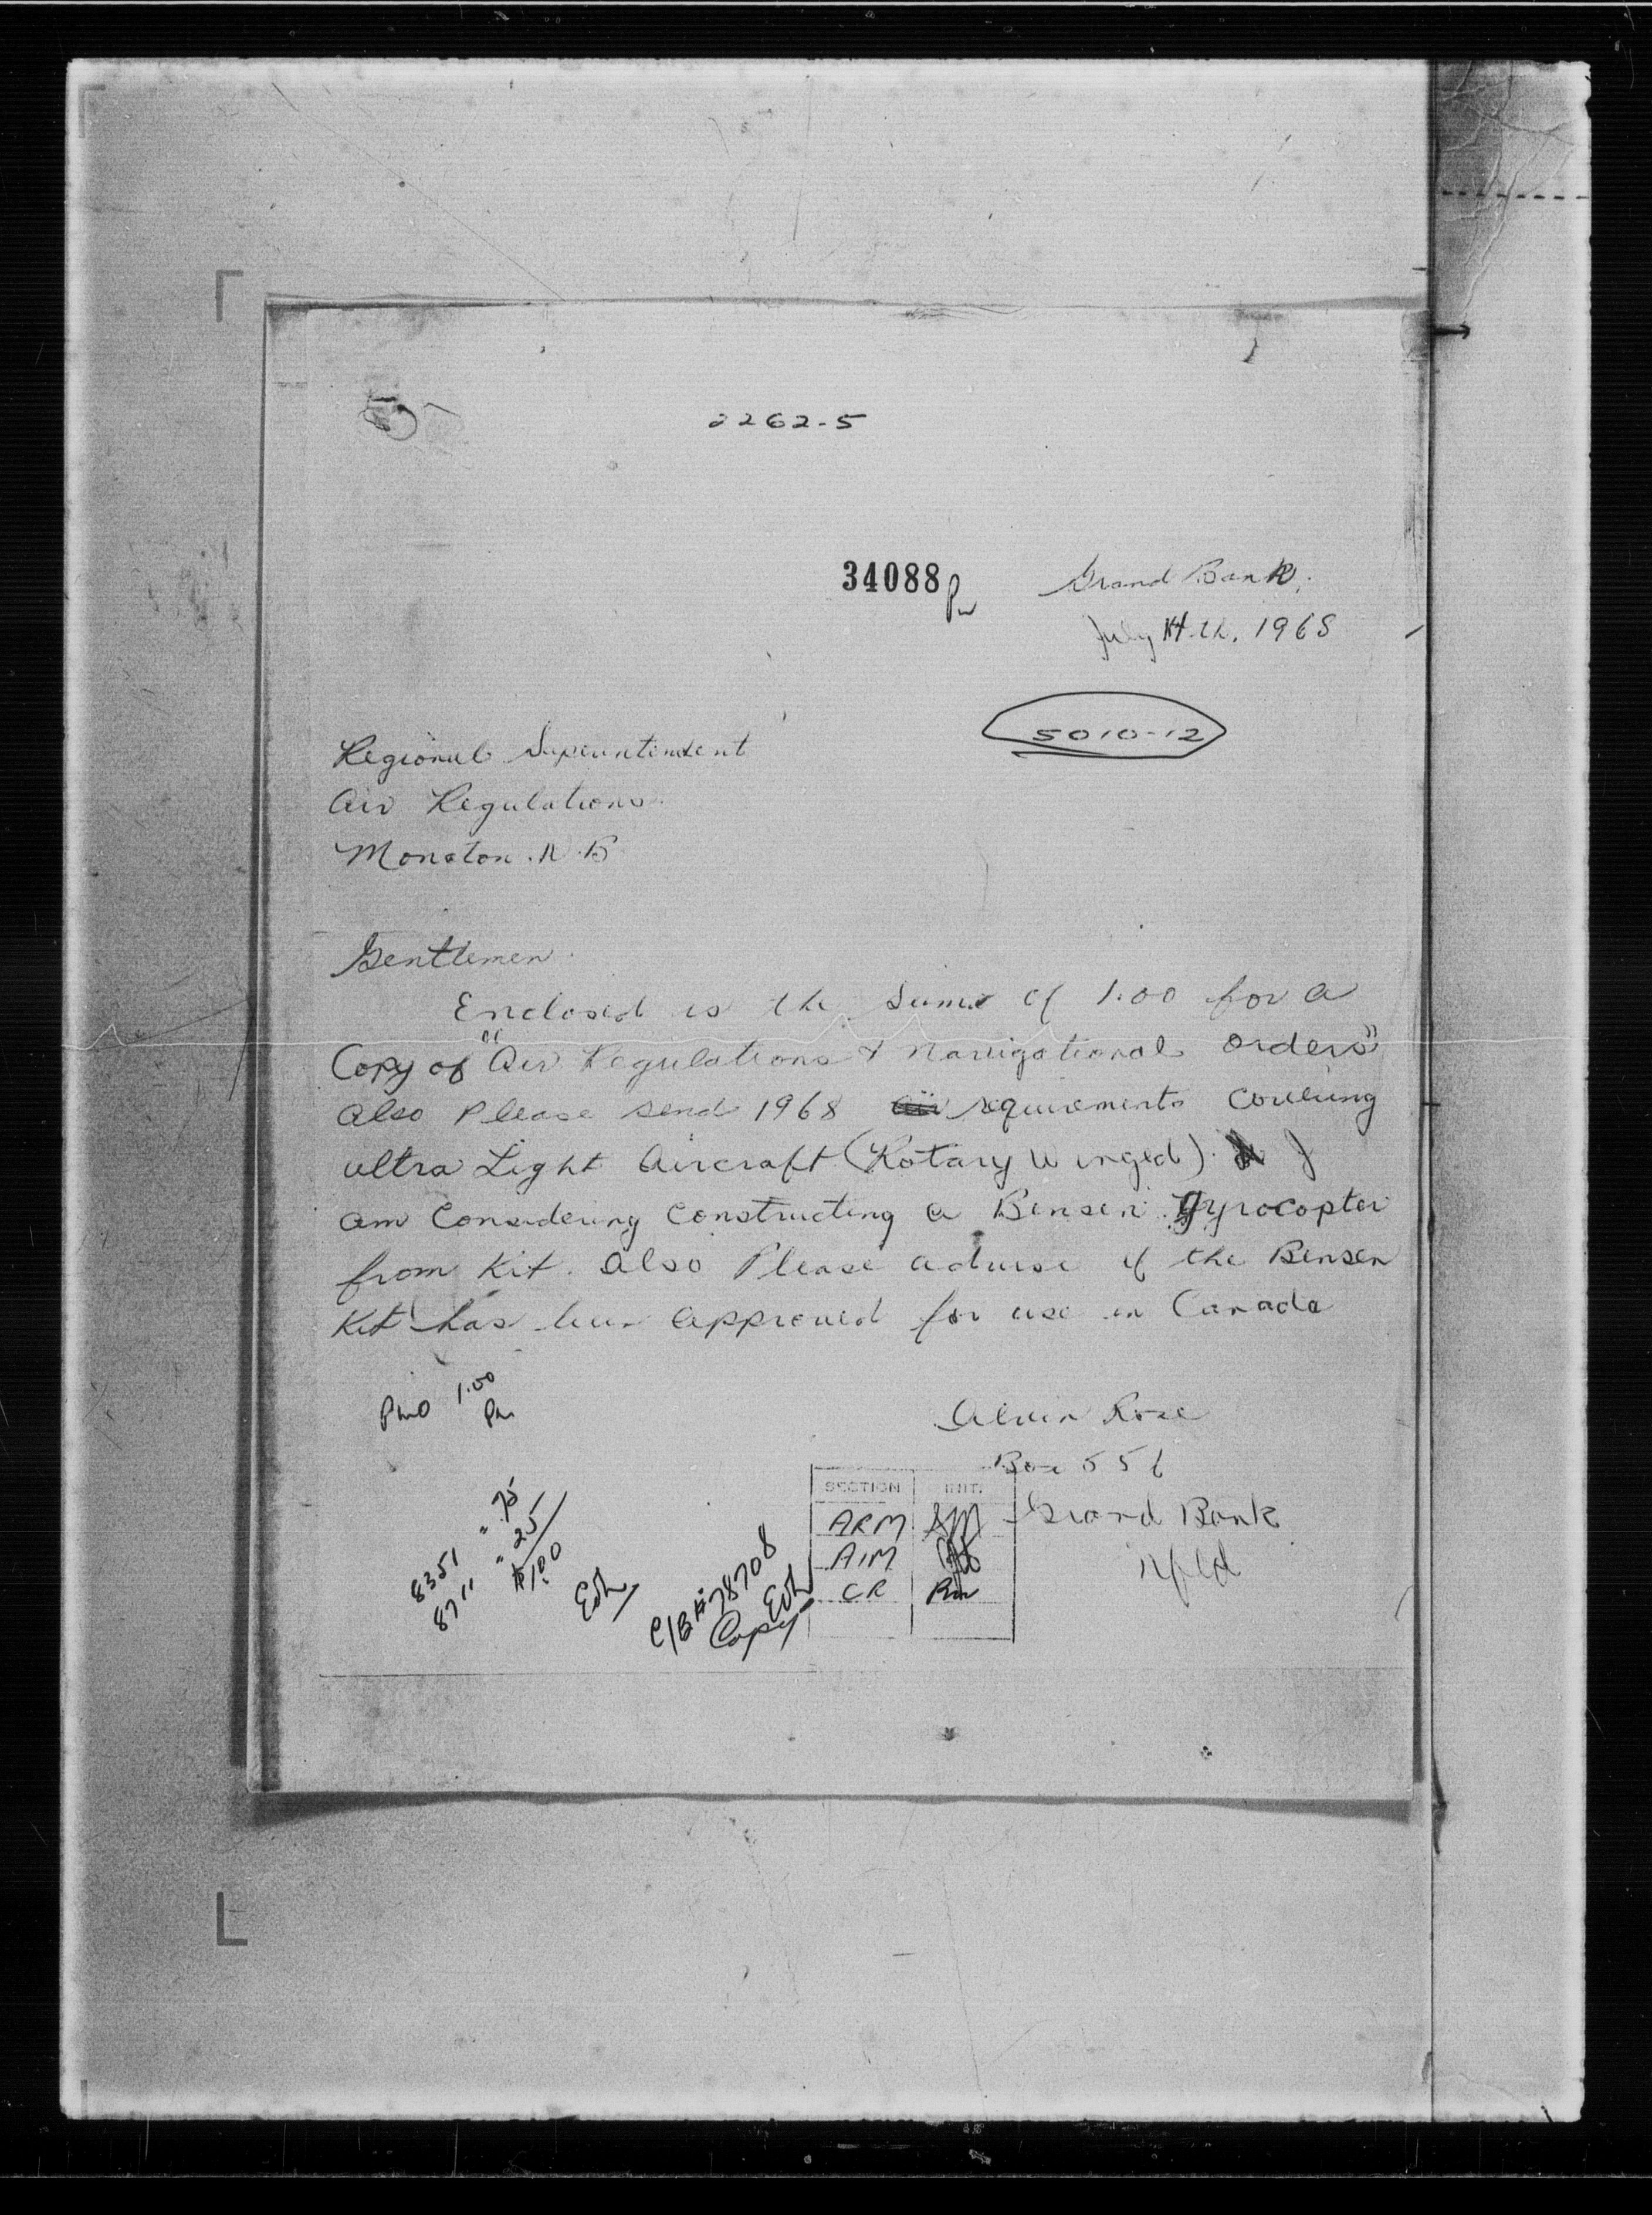 2262-5
34088
Grand Bank,
July 14th, 1968
5010-12
Regional Superintendent
Air Regulations
Moncton. N.B
Gentlemen.
Enclosed is the sum of 1.00 for a
Copy of "Air Regulations & Navigational Orders"
also Please send 1968 requirements covering
ultra Light Aircraft (Rotary Winged). I
am Considering Constructing a Bensen Gyrocopter
from Kit. also Please advise if the Bensen
Kit has been approved for use in Canada
1.00
Alvin Rose
Box 556
Grand Bank
Nfld
SECTION INIT.
ARM
AIM
CR
8351 " .75
8711 " 25
$1.00
C/B #78708
Copy